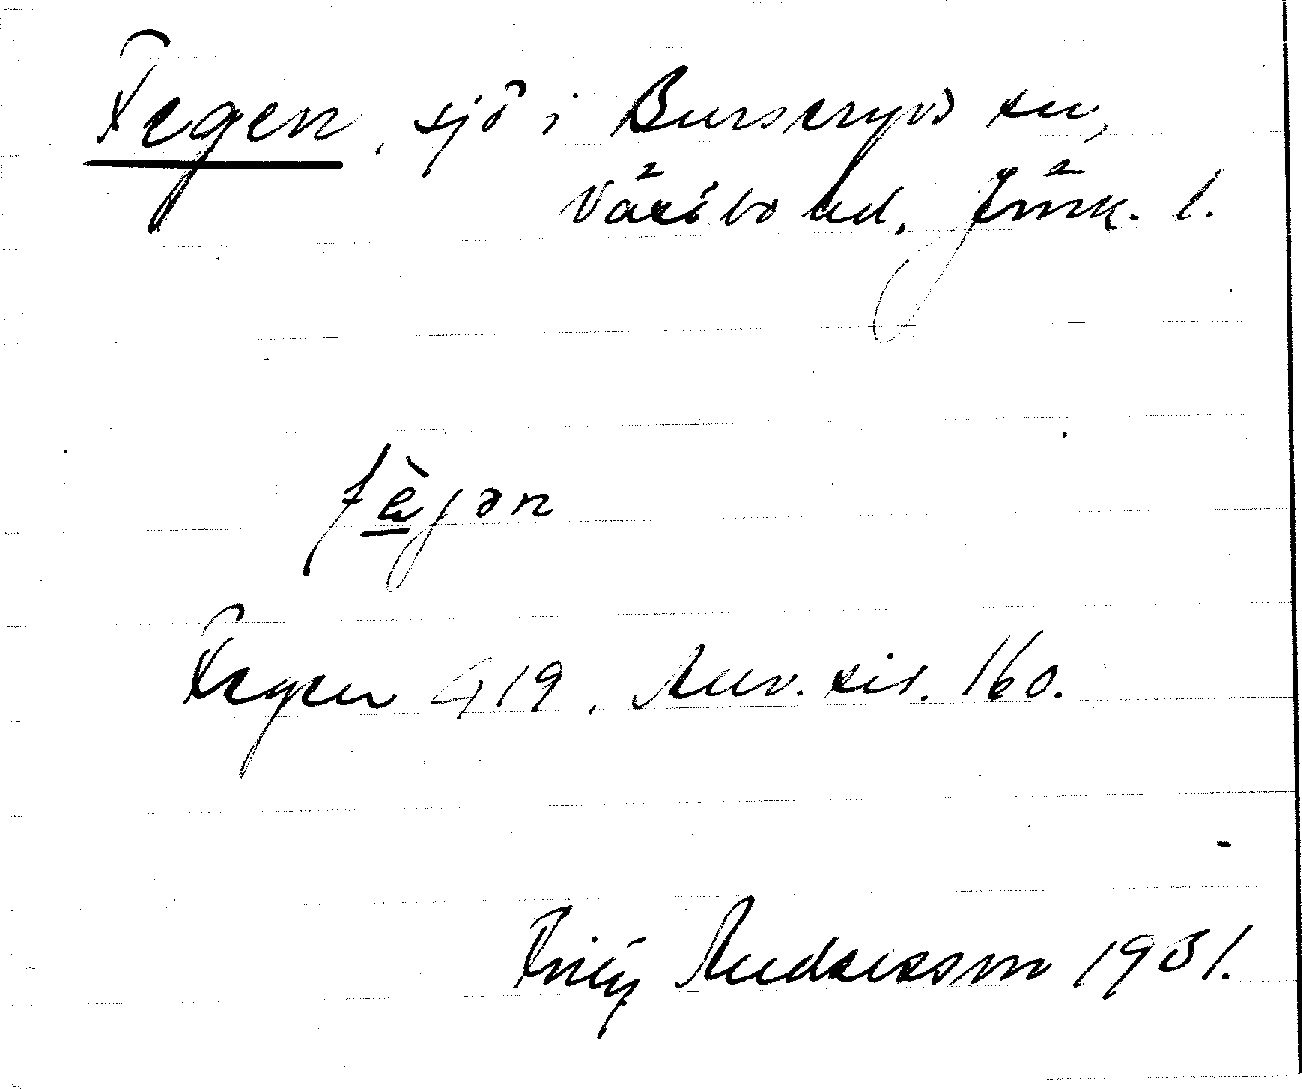 Fegen, sjö i Burseryds sn,
Västbo hd. Jönk. l.
fè̱jən
Fegen 419. Anv. sid. 160.
Fritz Andersson 1931.